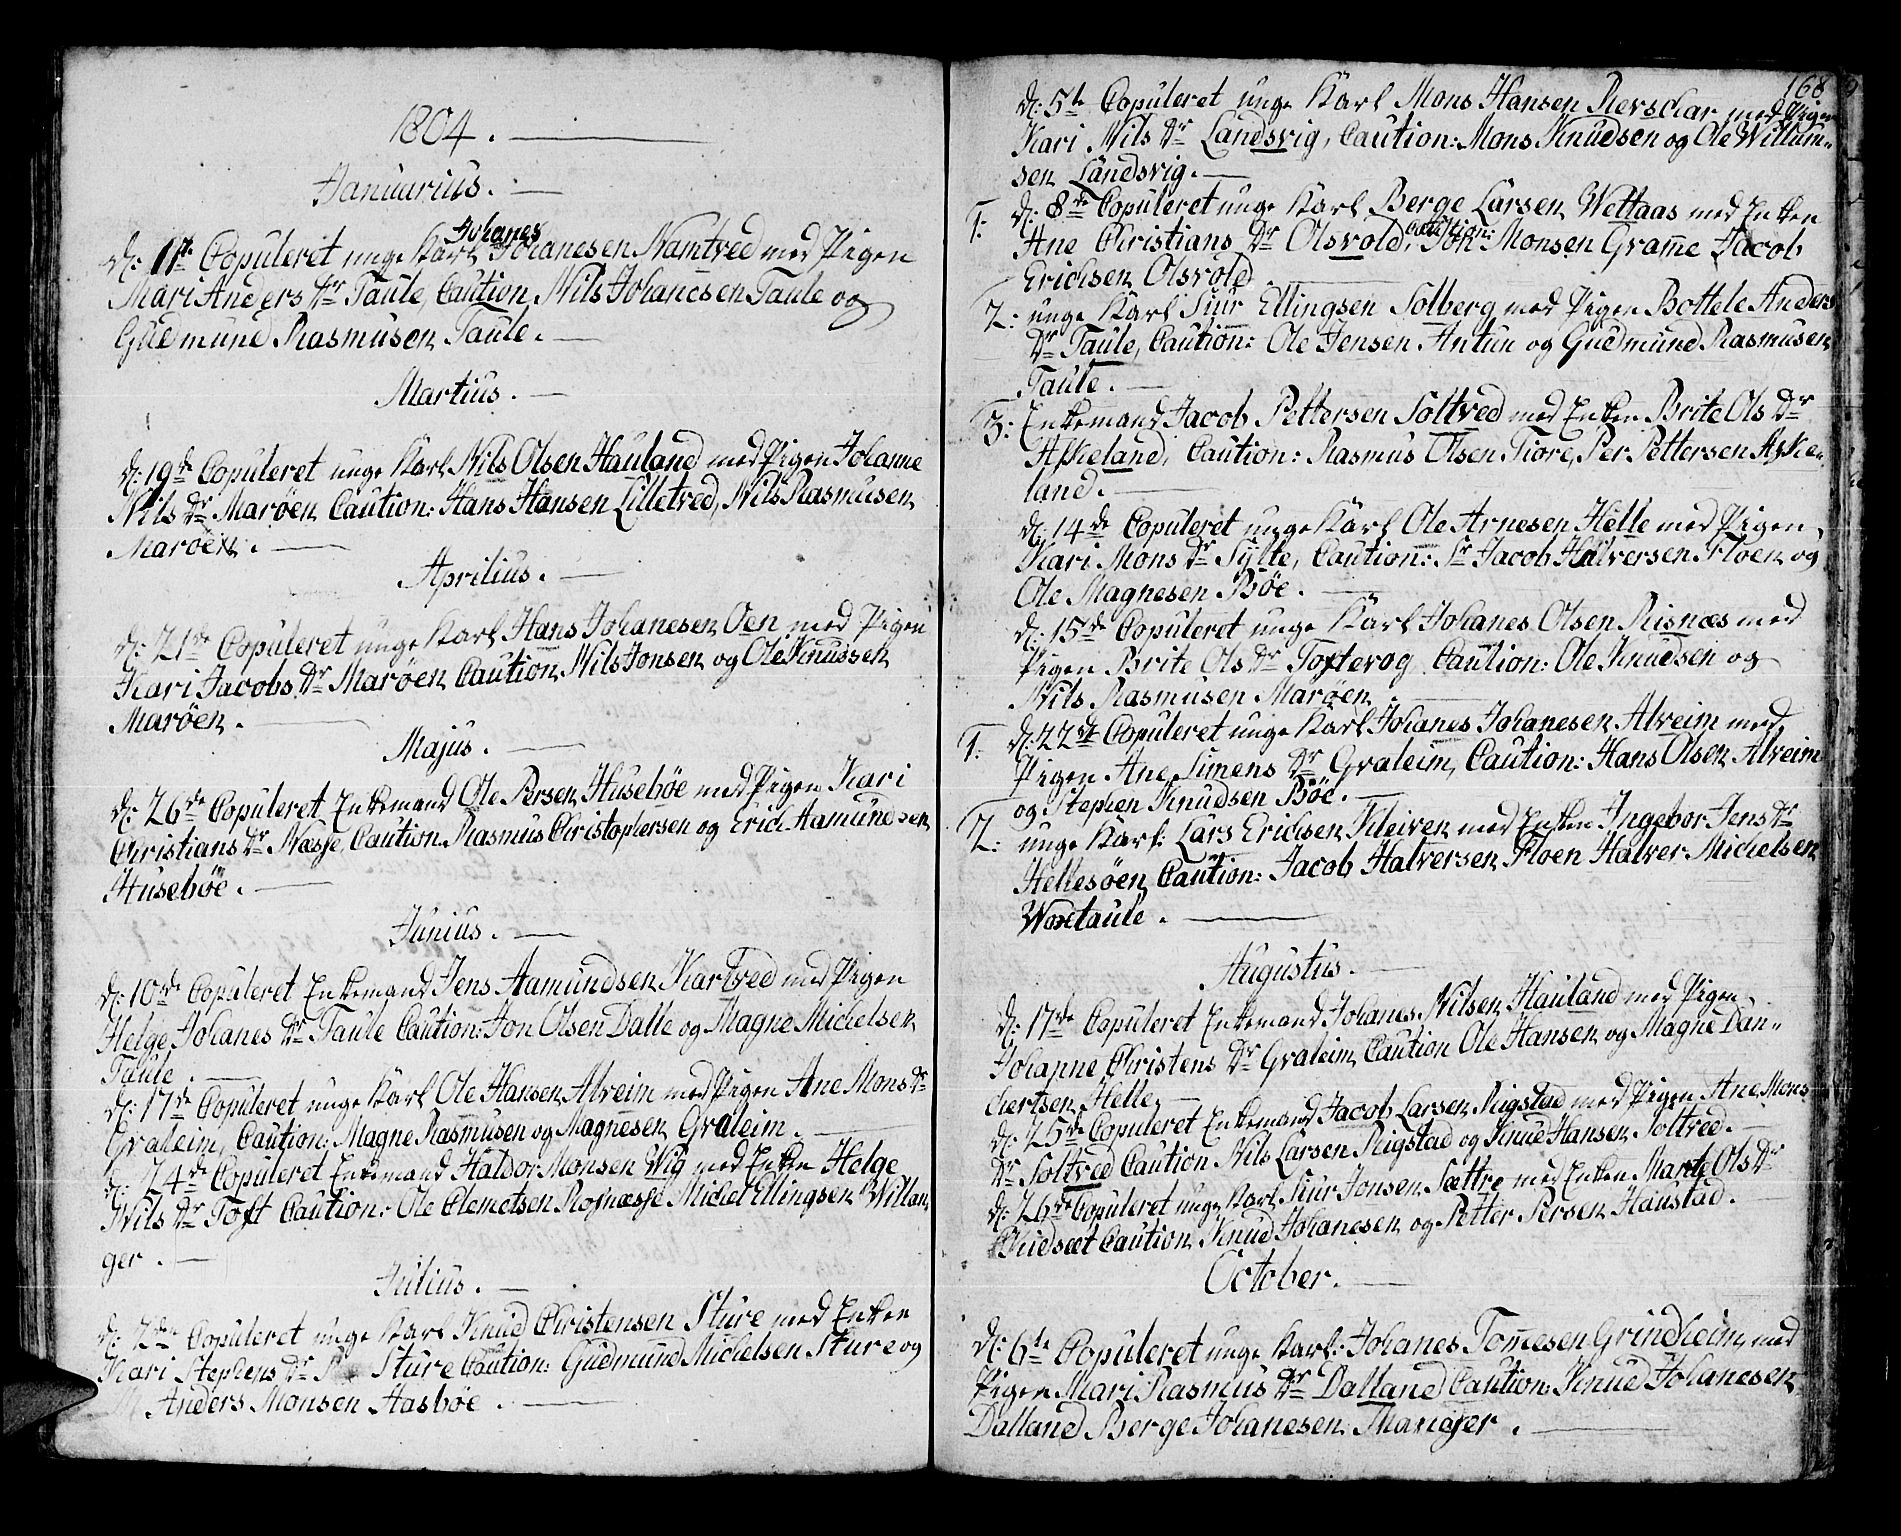 1804.
Januarius.
Johanes
d: 11te Copuleret unge Karl Johanesen Namtved med Pigen
Mari Anders Dr Taule, Caution Nils Johanesen Taule og
Gudmund Rasmusen Taule.
Martius.
d: 19de Copuleret unge Karl Nils Olsen Hauland med Pigen Johanne
Nils Dr Marøen Caution: Hans Hansen Lilletved, Nils Rasmusen
Marøen.
Aprilius.
d: 21de Copuleret unge Karl Hans Johanesen Oen med Pigen
Kari Jacobs Dr Marøen Caution Nils Jonsen og Ole Knudsen
Marøen.
Majus.
d: 26de Copuleret Enkemand Ole Persen Husebøe med Pigen Kari
Christians Dr Næsje Caution Rasmus Christophersen og Erich Aamundsen
Husebøe.
Junius.
d: 10de Copuleret Enkemand Jens Aamundsen Kartved med Pigen
Helge Johanes Dr Taule Caution: Jon Olsen Dalle og Magne Michelsen
Taule.
d: 17de Copuleret unge Karl Ole Hansen Alveim med Pigen Ane Mons Dr
Graleim, Caution: Magne Rasmusen og Magnesen Graleim.
d: 24de Copuleret Enkemand Haldor Monsen Wig med Enken Helge
Nils Dr Toft Caution: Ole Clemetsen Rosnæsje Michel Ellingsen Willan
ger.
Julius.
d: 2den Copuleret unge Karl Knud Christensen Sture med Enken
Kari Stephens Dr Sture Caution: Gudmund Michelsen Sture og
Anders Monsen Aasbøe.
168
d: 5te Copuleret unge Karl Mons Hansen Rerschar med Pigen
Kari Nils Dr Landsvig, Caution: Mons Knudsen og Ole Willum=
sen Landsvig.
1: d: 8de Copuleret unge Karl Berge Larsen Wettaas med Enken
Caution:
Ane Christians Dr Olsvold, Jon Monsen Grame Jacob
Erichsen Olsvold.
2: unge Karl Siur Ellingsen Solberg med Pigen Bottele Anders
Dr Taule, Caution: Ole Jensen Antun og Gudmund Rasmusen
Taule.
3: Enkemand Jacob Pettersen Soltved med Enken Brite Ols Dr
Askeland, Caution: Rasmus Olsen Fiore, Per Pettersen Aske=
land.
d: 14de Copuleret unge Karl Ole Arnesen Helle med Pigen
Kari Mons Dr Sylte, Caution: Sr Jacob Halversen Floen og
Ole Magnesen Bøe.
d: 15de Copuleret unge Karl Johanes Olsen Risnæs med
Pigen Brite Ols Dr Toftevog Caution: Ole Knudsen og
Nils Rasmusen Marøen.
1: d: 22de Copuleret unge Karl Johanes Johanesen Alveim med
Pigen Ane Simens Dr Graleim, Caution: Hans Olsen Alveim
og Stephen Knudsen Bøe.
2: unge Karl: Lars Erichsen Kleiven med Enken Ingebor Jens Dr
Hellesøen Caution: Jacob Halversen Floen Halver Michelsen
Woxetaule.
Augustus.
d: 17de Copuleret Enkemand Johanes Nilsen Hauland med Pigen
Johanne Christens Dr Graleim Caution Ole Hansen og Magne Dan=
chertsen Helle.
d: 25de Copuleret Enkemand Jacob Larsen Rigstad med Pigen Ane Mons
Dr Soltved Caution Nils Larsen Rigstad og Knud Hansen Soltved.
d: 26de Copuleret unge Karl Siur Jonsen Sættre med Enken Marte Ols Dr
Kidsæt Caution Knud Johanesen og Petter Persen Haustad.
October.
d: 6te Copuleret unge Karl: Johanes Tomesen Grindheim med
Pigen Mari Rasmus Dr Dalland Caution: Knud Johanesen
Dalland Berge Johanesen Manger.